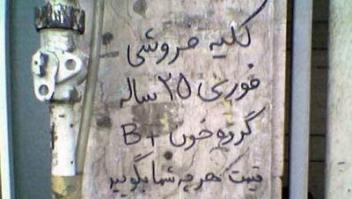 کلیه فروشی
فوری ۲۵ ساله
گروه خون B+
قیمت هر چه شما بگویید